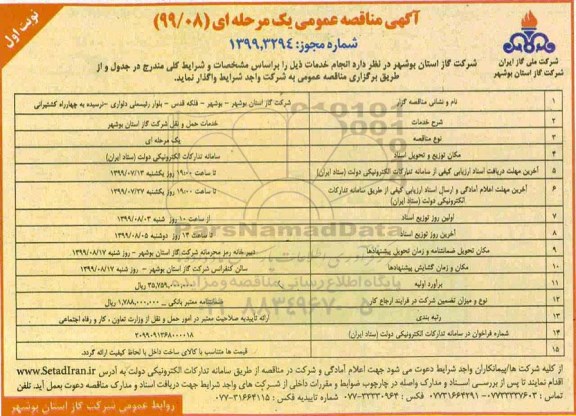 نوبت اول
آگهی مناقصه عمومی یک مرحله ای (۹۹/۰۸)
شماره مجوز: ۱۳۹۹,۳۲۹۴
شرکت ملی گاز ایران
شرکت گاز استان بوشهر
شرکت گاز استان بوشهر در نظر دارد انجام خدمات ذیل را براساس مشخصات و شرایط کلی مندرج در جدول و از
طریق برگزاری مناقصه عمومی به شرکت واجد شرایط واگذار نماید.
۱ نام و نشانی مناقصه گزار شرکت گاز استان بوشهر - بوشهر - فلکه قدس - بلوار رئیسعلی دلواری - نرسیده به چهارراه کشتیرانی
۲ شرح خدمات خدمات حمل و نقل شرکت گاز استان بوشهر
۳ نوع مناقصه یک مرحله ای
۴ مکان توزیع و تحویل اسناد سامانه تدارکات الکترونیکی دولت (ستاد ایران)
۵ آخرین مهلت دریافت اسناد ارزیابی کیفی از سامانه تدارکات الکترونیکی دولت (ستاد ایران) تا ساعت ۱۹:۰۰ روز یکشنبه ۱۳۹۹/۰۷/۱۳
۶ آخرین مهلت اعلام آمادگی و ارسال اسناد ارزیابی کیفی از طریق سامانه تدارکات
الکترونیکی دولت (ستاد ایران) تا ساعت ۱۹:۰۰ روز یکشنبه ۱۳۹۹/۰۷/۲۷
۷ اولین روز توزیع اسناد از ساعت ۱۰ روز شنبه ۱۳۹۹/۰۸/۰۳
۸ آخرین روز توزیع اسناد تا ساعت ۱۴ روز دوشنبه ۱۳۹۹/۰۸/۰۵
۹ مکان تحویل ضمانتنامه و زمان تحویل پیشنهادها دبیرخانه رمز محرمانه شرکت گاز استان بوشهر - روز شنبه ۱۳۹۹/۰۸/۱۷
۱۰ مکان و زمان گشایش پیشنهادها سالن کنفرانس شرکت گاز استان بوشهر - روز شنبه ۱۳۹۹/۰۸/۱۷
۱۱ برآورد اولیه ۳۵,۷۵۹,۰۰۰,۰۰۰ ریال
۱۲ نوع و میزان تضمین شرکت در فرایند ارجاع کار ضمانتنامه معتبر بانکی - ۱,۷۸۸,۰۰۰,۰۰۰ ریال
۱۳ رتبه بندی ارائه تأییدیه صلاحیت معتبر در امور حمل و نقل از وزارت تعاون ، کار و رفاه اجتماعی
۱۴ شماره فراخوان در سامانه تدارکات الکترونیکی دولت (ستاد ایران) ۲۰۹۹۰۹۱۳۶۸۰۰۰۰۱۸
۱۵ قیمت ها متناسب با کالای ساخت داخل با لحاظ کیفیت ارائه گردد.
از کلیه شرکت ها/پیمانکاران واجد شرایط دعوت می شود جهت اعلام آمادگی و شرکت در مناقصه از طریق سامانه تدارکات الکترونیکی دولت به آدرس www.SetadIran.ir
اقدام نمایند تا پس از بررسی اسناد و مدارک واصله در چارچوب ضوابط و مقررات داخلی از شرکت های واجد شرایط جهت دریافت اسناد و مدارک مناقصه دعوت بعمل آید. تلفن
تماس : ۰۷۷۳۳۳۳۷۶۰۳-۰۷۷۳۱۶۶۴۲۹۱ فکس : ۰۷۷-۳۳۳۳۰۹۶۴ شماره تاییدیه فکس : ۰۷۷-۳۱۶۶۴۱۱۵
روابط عمومی شرکت گاز استان بوشهر
ParsNamadData
پایگاه اطلاع رسانی مناقصه و مزایده
۰۲۱-۸۸۳۴۹۶۷۰-۵